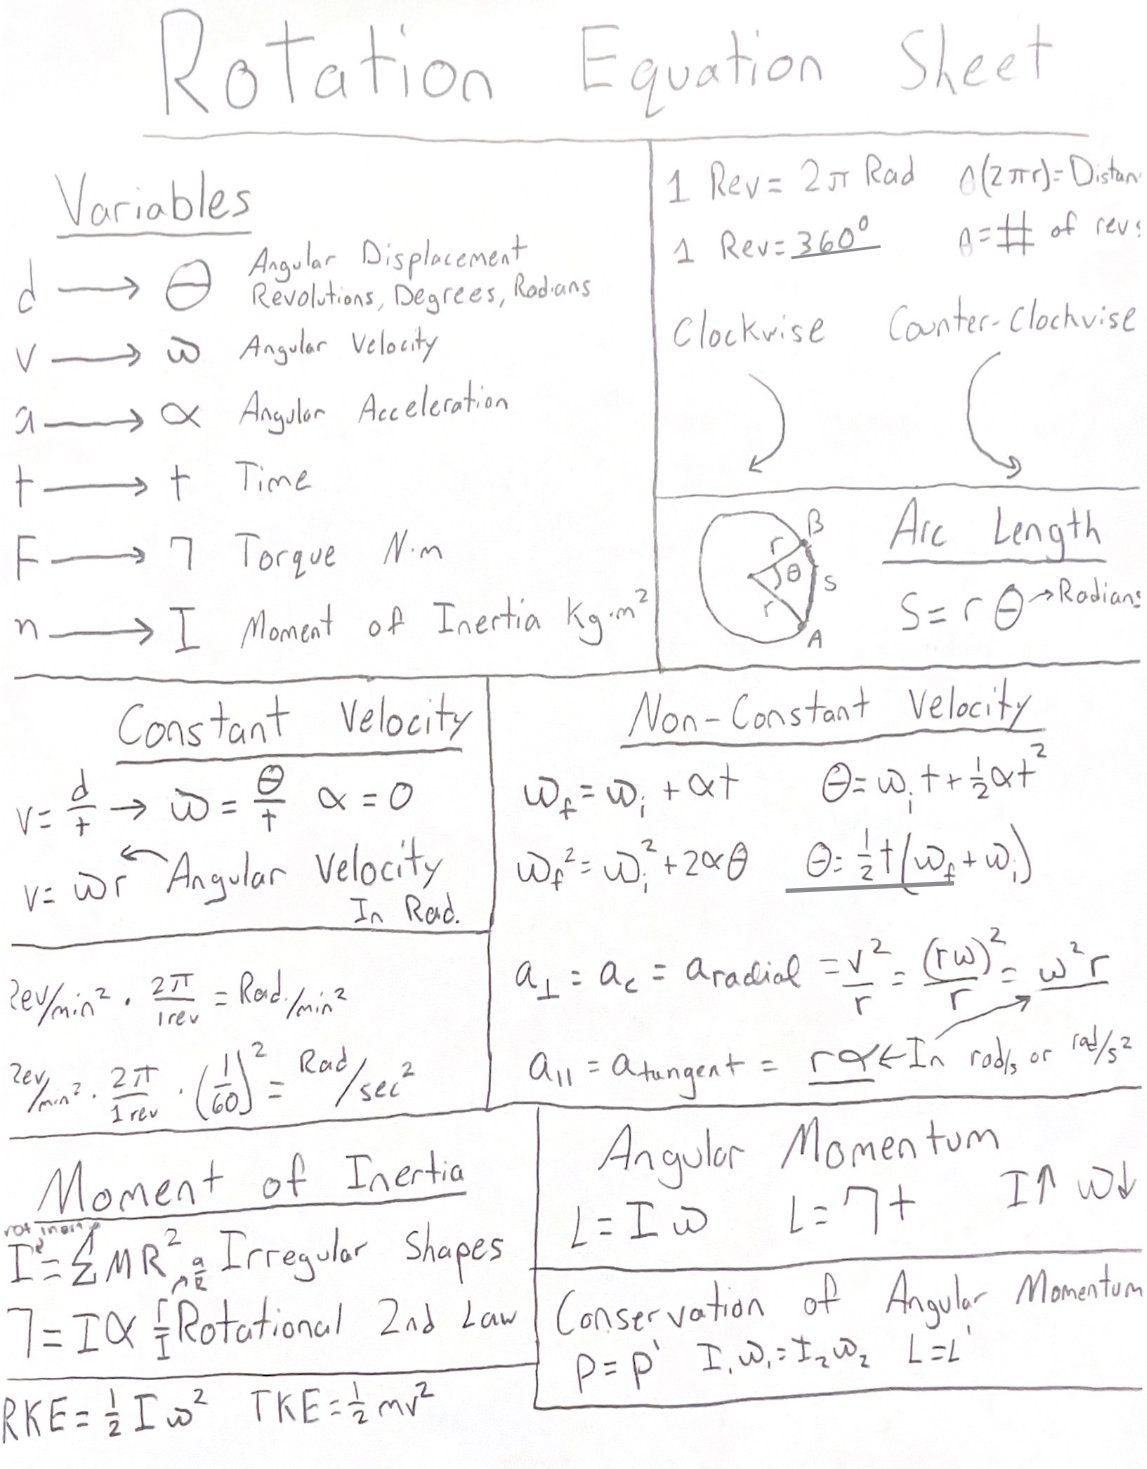 Rotation Equation Sheet
Variables
d → θ Angular Displacement
Revolutions, Degrees, Radians
v → ω Angular Velocity
a → α Angular Acceleration
t → t Time
F → τ Torque N·m
m → I Moment of Inertia Kg·m²
1 Rev = 2π Rad n(2πr) = Distan
1 Rev = 360° n = # of revs
Clockwise Counter-Clockwise
B
r
θ
s
r
A
Arc Length
S = r θ → Radians
Constant Velocity
v = d/t → ω = θ/t α = 0
v = ωr ← Angular Velocity
In Rad.
Non-Constant Velocity
ω_f = ω_i + αt θ = ω_i t + ½αt²
ω_f² = ω_i² + 2αθ θ = ½t(ω_f + ω_i)
a⊥ = a_c = a radial = v²/r = (rω)²/r = ω²r
a∥ = a tangent = rα ← In rad/s or rad/s²
Rev/min² · 2π/1rev = Rad./min²
Rev/min² · 2π/1rev · (1/60)² = Rad/sec²
Moment of Inertia
I = Σ MR² Irregular Shapes
τ = Iα Rotational 2nd Law
RKE = ½ I ω² TKE = ½ mv²
Angular Momentum
L = I ω L = τt I↑ ω↓
Conservation of Angular Momentum
P = P' I₁ω₁ = I₂ω₂ L = L'